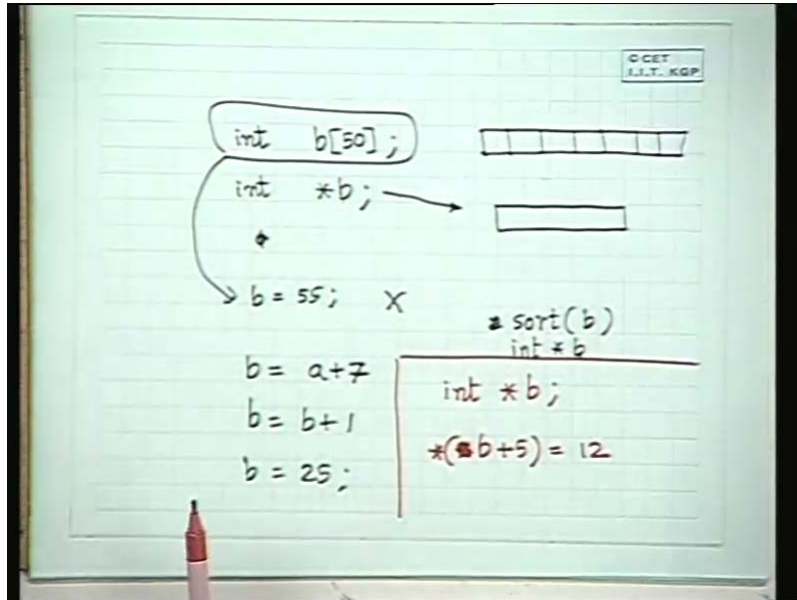 © CET
I.I.T. KGP
int b[50] ;
int *b ;
b = 55 ; X
sort(b)
int * b
b = a+7
b = b+1
b = 25 ;
int *b ;
*(b+5) = 12